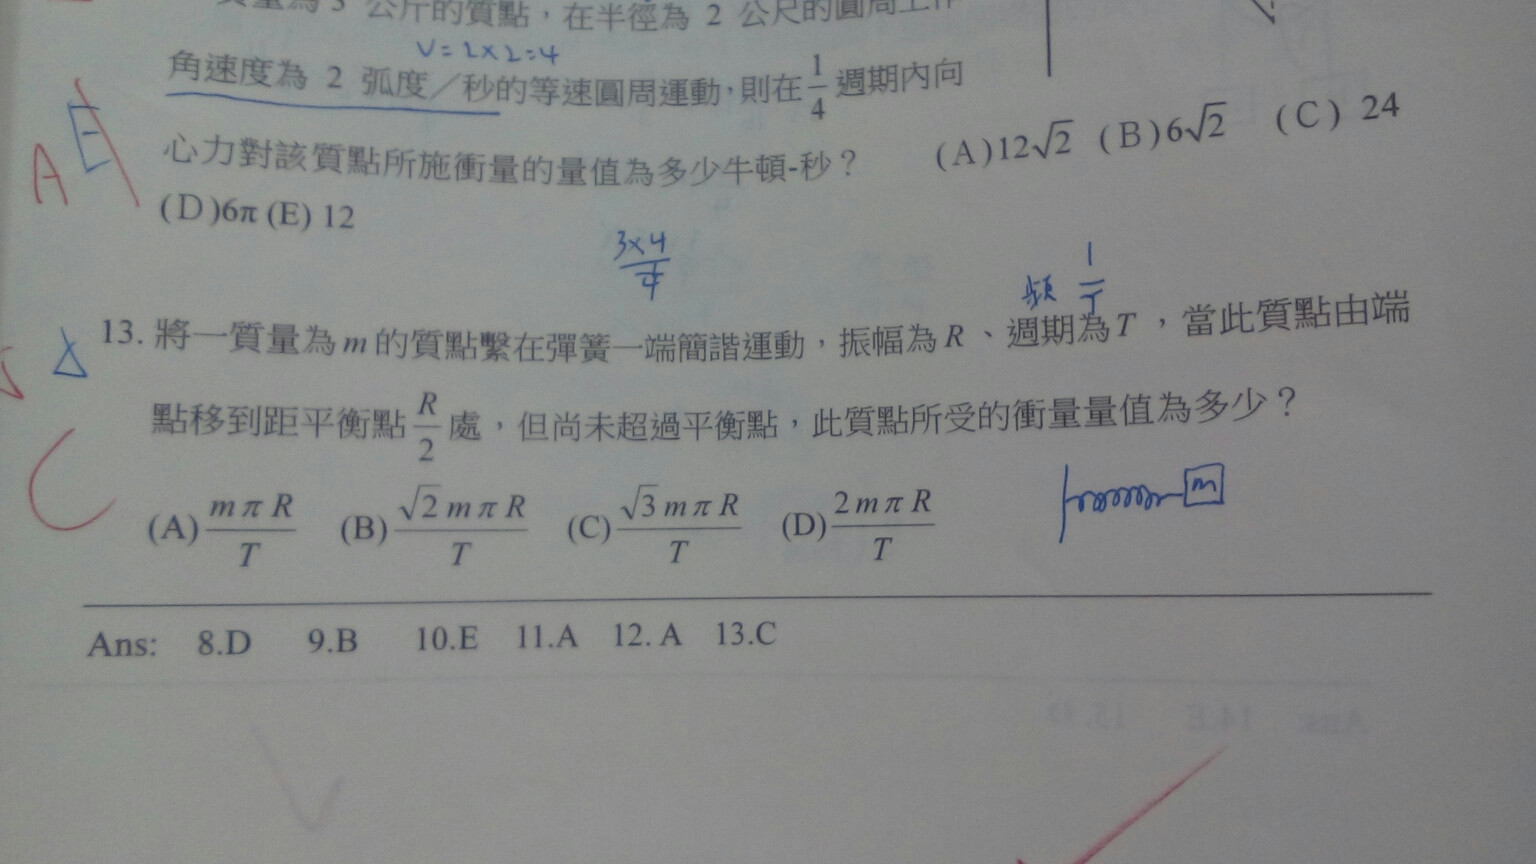 質量為 3 公斤的質點，在半徑為 2 公尺的圓周上作
V=2×2=4
角速度為 2 弧度／秒的等速圓周運動，則在 1/4 週期內向
A E
心力對該質點所施衝量的量值為多少牛頓-秒？ (A)12√2 (B)6√2 (C) 24
(D)6π (E) 12
3×4/4
頻 1/T
13. 將一質量為 m 的質點繫在彈簧一端簡諧運動，振幅為 R、週期為 T，當此質點由端
點移到距平衡點 R/2 處，但尚未超過平衡點，此質點所受的衝量量值為多少？
C
m
(A) mπR/T (B) √2mπR/T (C) √3mπR/T (D) 2mπR/T
Ans: 8.D 9.B 10.E 11.A 12. A 13.C